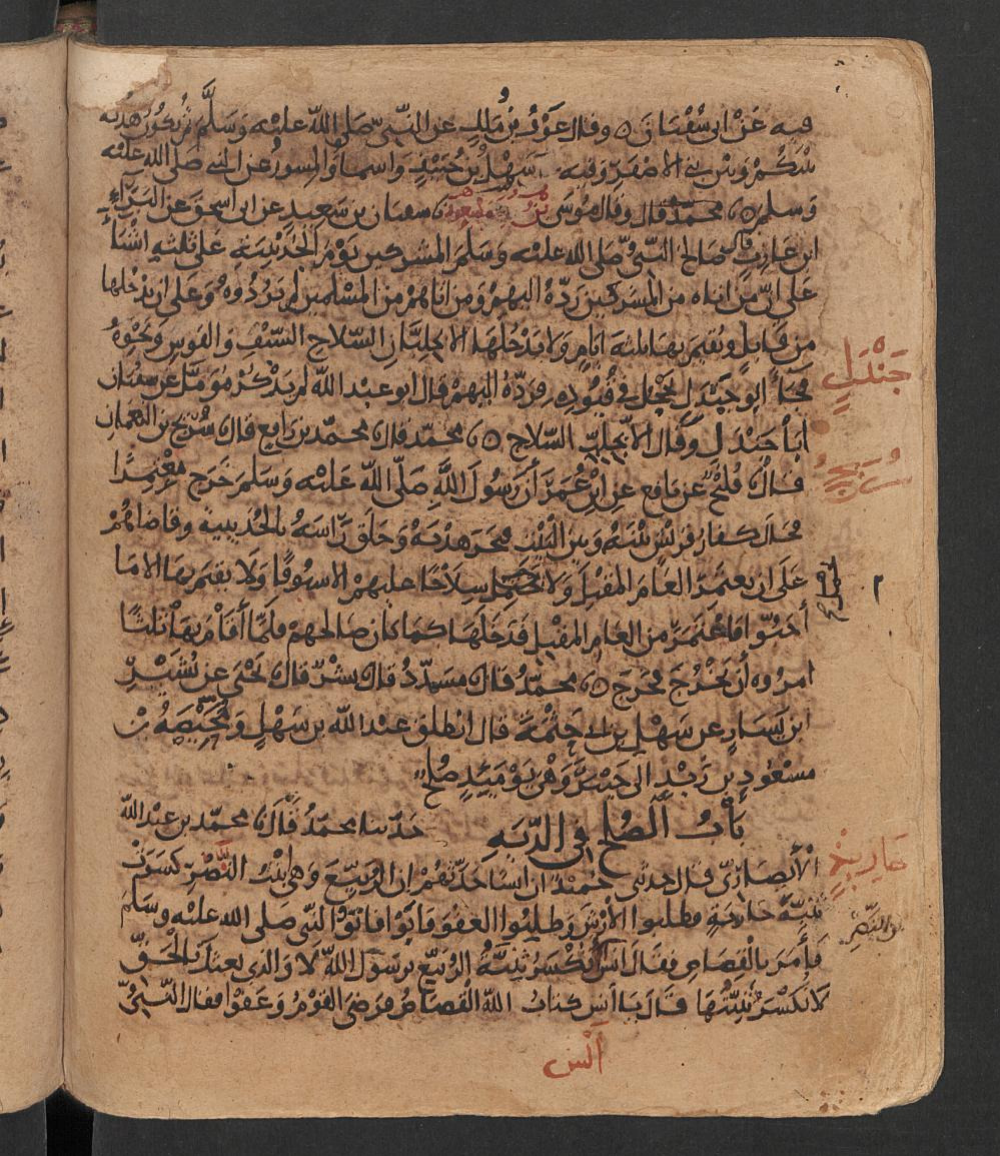 فيه عَنْ ابي سُفْيَان ۝ وقال عَوْفُ بنُ مٰلكٍ عن النّبيّ صَلى اللهُ عَليْه وَسَلَّمَ ثُمّ تكُونُ هُدْنَه
بَيْنَكُمْ وَبَيْنَ بَني الاصْفَرِ وفيه سَهْلُ بن حُنَيْفٍ وَاسما وَالمِسورُ عن النبي صَلى الله عليْه
وَسلم ۝ محمّدٌ قال وقال مُوسَى بْنُ مَسْعودٍ سفيان بن سَعيدٍ عن ابى اسحٰق عن البَرَاءِ
ابن عَازبٍ قال صَالحَ النّبىُّ صَلى الله عليْه وَسَلمَ المشركين يَوْمَ الحُدَيْبيَة عَلى ثلثهِ اشْيَاءَ
عَلى انّ مَنْ اتاه من المشركين رَدّهُ اليهمْ وَمن اتاهمْ من المُسْلمين لم يَرُدّوهُ وَعَلى ان يَدْخُلها
من قَابلٍ وَيُقيمَ بهَا ثلثه ايّامٍ وَلا يَدْخُلَهَا الا بجُلبّان السّلاح السَّيْفِ وَالقوسِ وَنحْوِهُ
فجَآ ابُو جَنْدَلٍ يَحْجُل في قُيُودِه فَرَدّهُ اليهمْ قال ابو عبْد الله لم يَذْكرْ مُؤمَّل عن سفيان
أبَا جَنْدَلٍ وَقال الاّ بجُلبّ السّلاح ۝ محمّد قال محمّد بن رَافع قال سُرَيْج بن النعمان
قال فُلَيْحٌ عن نافع عن ابنِ عُمَرَ أنّ رَسُولَ اللَّهِ صَلّى اللهُ عَليْه وَسَلمَ خَرَجَ مُعْتمِرًا
فحَال كفارُ قرَيْش بَيْنَهُ وَبينَ البَيْت فنحَرَ هدْيَهُ وَحَلقَ رَاسَهُ بالحُدَيبية وَقاضَاهُمْ
عَلَى ان يعتمرَ العَامَ المقبلَ وَلا يَحْمِلَ سِلاحًا عليهمْ الا سُيُوفًا وَلا يقيمَ بهَا الا مَا
أحَبّوا فاعْتمَرَ من العَامِ المقبل فَدَخَلهَا كمَا كان صَالحهمْ فلمّا أقَامَ بهَا ثلثا
امرُوه أن يَخْرُجَ فخَرَجَ ۝ محمّدٌ قال مسَدّدُ قال بشْرٌ قال يَحْيَى عن بُشَيْرِ
ابن يَسَارٍ عن سَهْلِ بن ابي حَثْمَةَ قال انْطلقَ عبْد الله بن سَهْلٍ وَمُحَيّصَةُ بْن
مسْعُودِ بن زَيْدٍ الى خَيْبَرَ وَهْيَ يَوْمَئذٍ صُلْح
بَابُ الصُّلح في الدّيَه حَدّثنا محمدٌ قال محمّد بن عبْد الله
الأنصَارىّ قال حدثنى حُمَيْدٌ ان انسًا حَدّثهُمْ ان الرُّبَيّعَ وَهى ابْنَتُ النّضْرِ كسَرَتْ
ثنيّةَ جَاريَةٍ فطلبوا الأرْشَ وَطلبُوا العفوَ فابَوْا فاتوُا النّبى صَلى الله عليه وسَلمَ
فأمَرَ بالقصَاص فقال أنَسٌ أتُكْسَرُ ثنيَّةُ الرُّبَيّع يرسُولَ اللهِ لا وَالذى بعثك بالحَقّ
لا تُكْسَرُ ثنيّتُهَا قال يَا انَس كتابُ اللهِ القصَاصُ فرَضىَ القوْمُ وَعَفوْا فقال النّبىُّ
جَنْدَلٍ
سُرَيجُ
يحمل
٢
جَاريةٍ
بن النّضر
أنَس